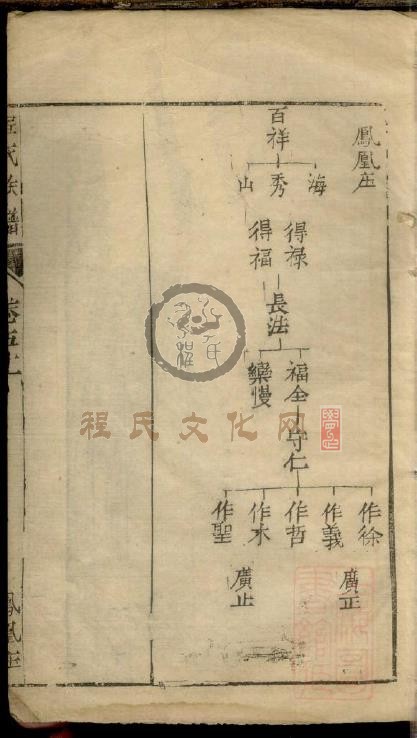 鳳凰庄
百祥
海
秀
山
得禄
得福
長法
福全
樂慢
守仁
作徐
作義
作哲
作木
作聖
廣正
廣止
程氏族譜
卷五上
鳳凰庄
程氏文化网